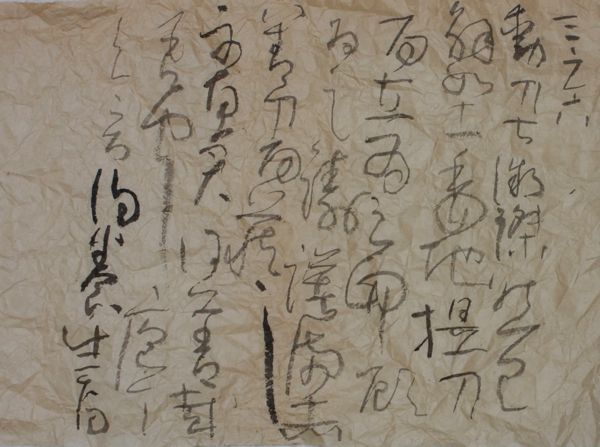 動刀甚微謋然已
解如土委地提刀
而立為之四顧
為之躊躇滿志
善刀而藏之
文惠君曰善哉
吾聞庖丁
之言得養生焉